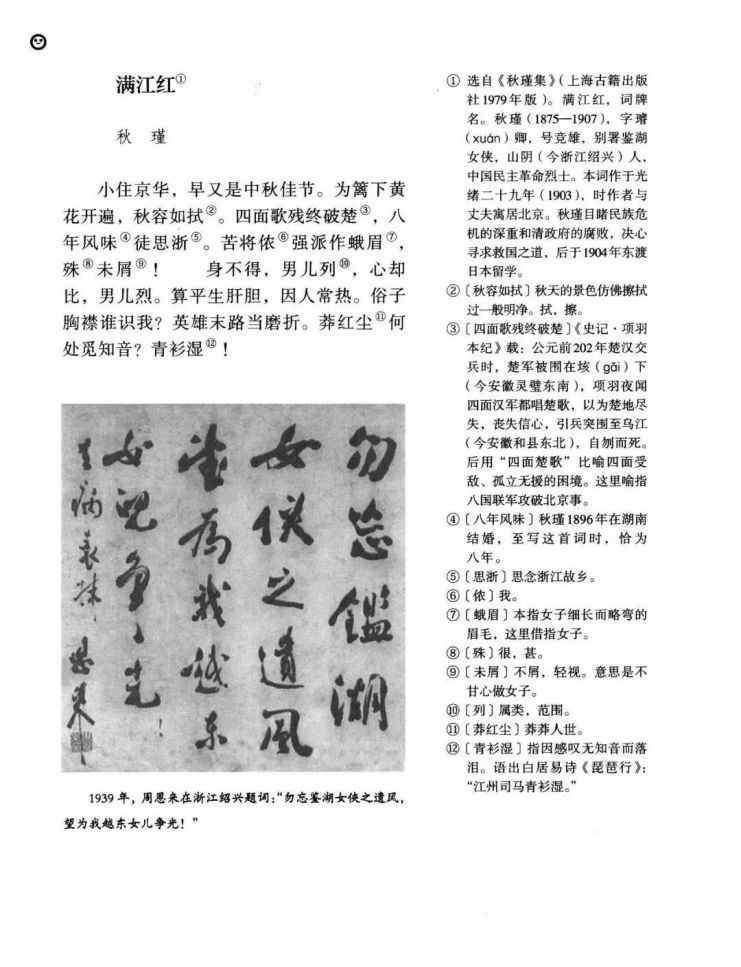 满江红①
秋 瑾
小住京华，早又是中秋佳节。为篱下黄
花开遍，秋容如拭②。四面歌残终破楚③，八
年风味④徒思浙⑤。苦将侬⑥强派作蛾眉⑦，
殊⑧未屑⑨！ 身不得，男儿列⑩，心却
比，男儿烈。算平生肝胆，因人常热。俗子
胸襟谁识我？英雄末路当磨折。莽红尘⑪何
处觅知音？青衫湿⑫！
勿忘鑑湖
女侠之遗风
望为我越东
女儿争光！
1939 年，周恩来在浙江绍兴题词：“勿忘鉴湖女侠之遗风，
望为我越东女儿争光！”
① 选自《秋瑾集》（上海古籍出版
社1979年版）。满江红，词牌
名。秋瑾（1875—1907），字璿
（xuán）卿，号竞雄，别署鉴湖
女侠，山阴（今浙江绍兴）人，
中国民主革命烈士。本词作于光
绪二十九年（1903），时作者与
丈夫寓居北京。秋瑾目睹民族危
机的深重和清政府的腐败，决心
寻求救国之道，后于1904年东渡
日本留学。
②〔秋容如拭〕秋天的景色仿佛擦拭
过一般明净。拭，擦。
③〔四面歌残终破楚〕《史记·项羽
本纪》载：公元前202年楚汉交
兵时，楚军被围在垓（gāi）下
（今安徽灵璧东南），项羽夜闻
四面汉军都唱楚歌，以为楚地尽
失，丧失信心，引兵突围至乌江
（今安徽和县东北），自刎而死。
后用“四面楚歌”比喻四面受
敌、孤立无援的困境。这里喻指
八国联军攻破北京事。
④〔八年风味〕秋瑾1896年在湖南
结婚，至写这首词时，恰为
八年。
⑤〔思浙〕思念浙江故乡。
⑥〔侬〕我。
⑦〔蛾眉〕本指女子细长而略弯的
眉毛，这里借指女子。
⑧〔殊〕很，甚。
⑨〔未屑〕不屑，轻视。意思是不
甘心做女子。
⑩〔列〕属类，范围。
⑪〔莽红尘〕莽莽人世。
⑫〔青衫湿〕指因感叹无知音而落
泪。语出白居易诗《琵琶行》：
“江州司马青衫湿。”